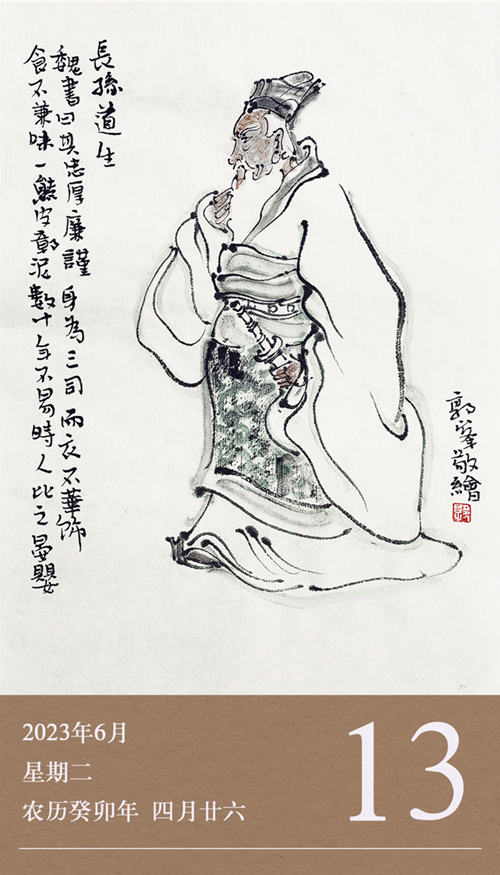 長孫道生
魏書曰其忠厚廉謹身為三司而衣不華飾
食不兼味一熊皮鄣泥數十年不易時人比之晏嬰
郭峯敬繪
2023年6月
星期二
农历癸卯年 四月廿六
13